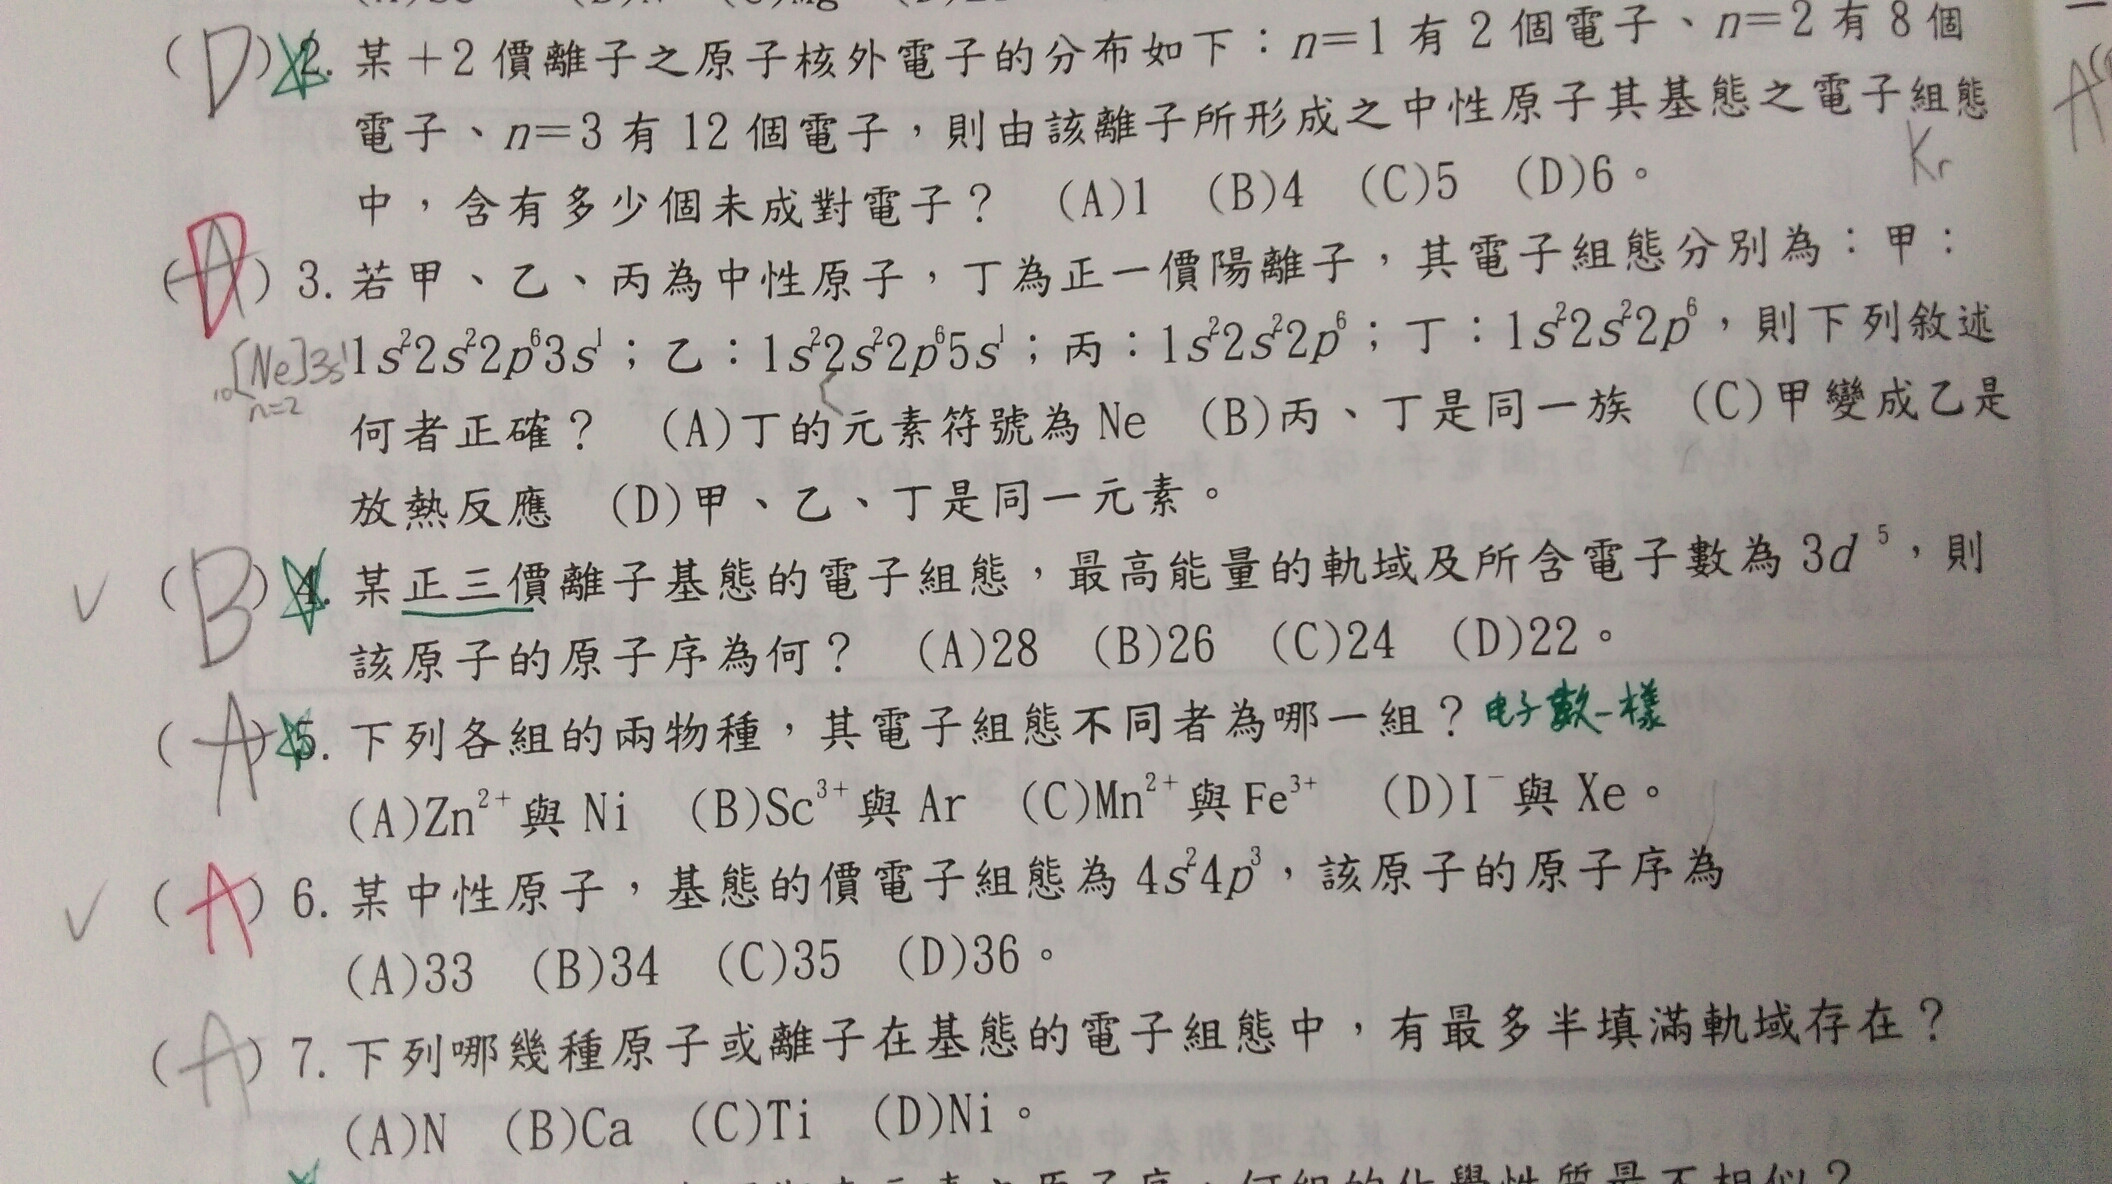 (D) 2. 某＋2 價離子之原子核外電子的分布如下：n＝1 有 2 個電子、n＝2 有 8 個
電子、n＝3 有 12 個電子，則由該離子所形成之中性原子其基態之電子組態
Kr
中，含有多少個未成對電子？ (A)1 (B)4 (C)5 (D)6。
(D) 3. 若甲、乙、丙為中性原子，丁為正一價陽離子，其電子組態分別為：甲：
1s²2s²2p⁶3s¹；乙：1s²2s²2p⁶5s¹；丙：1s²2s²2p⁶；丁：1s²2s²2p⁶，則下列敘述
10[Ne]3s¹
n=2
何者正確？ (A)丁的元素符號為 Ne (B)丙、丁是同一族 (C)甲變成乙是
放熱反應 (D)甲、乙、丁是同一元素。
(B) 4. 某正三價離子基態的電子組態，最高能量的軌域及所含電子數為 3d ⁵，則
該原子的原子序為何？ (A)28 (B)26 (C)24 (D)22。
(A) 5. 下列各組的兩物種，其電子組態不同者為哪一組？ 电子數一樣
(A)Zn²⁺與 Ni (B)Sc³⁺與 Ar (C)Mn²⁺與 Fe³⁺ (D)I⁻與 Xe。
(A) 6. 某中性原子，基態的價電子組態為 4s²4p³，該原子的原子序為
(A)33 (B)34 (C)35 (D)36。
(A) 7. 下列哪幾種原子或離子在基態的電子組態中，有最多半填滿軌域存在？
(A)N (B)Ca (C)Ti (D)Ni。